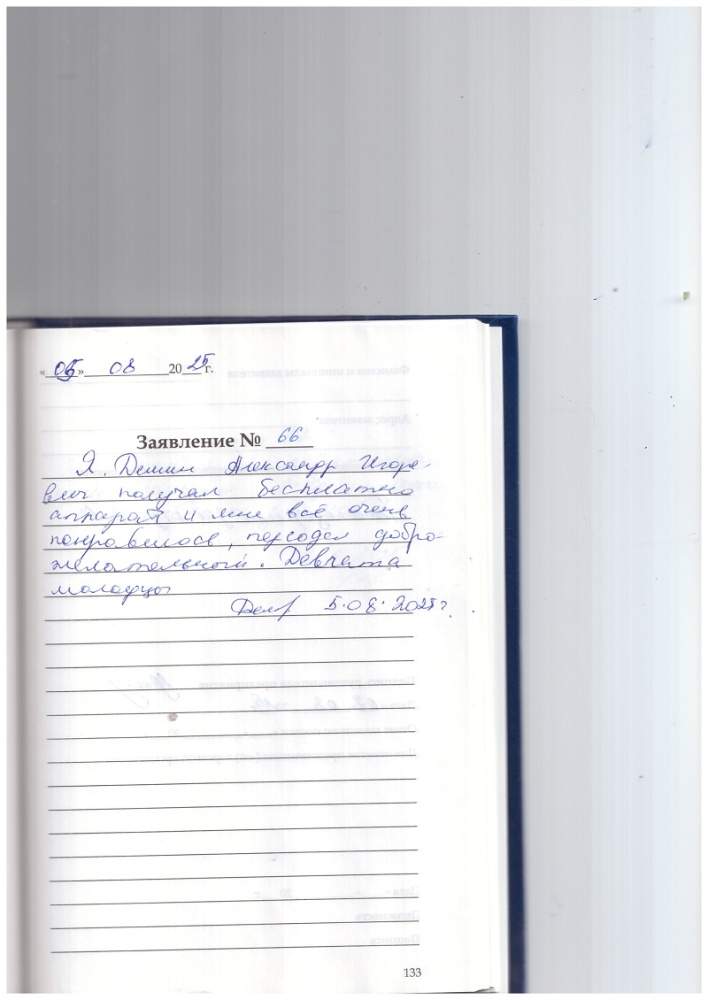 «05» 08 2025 г.
Заявление № 66
Я. Демин Александр Игоре-
вич получал бесплатно
аппарат и мне всё очень
понравилось, персонал добро-
желательный. Девчата
молодцы
5.08.2025 г.
133